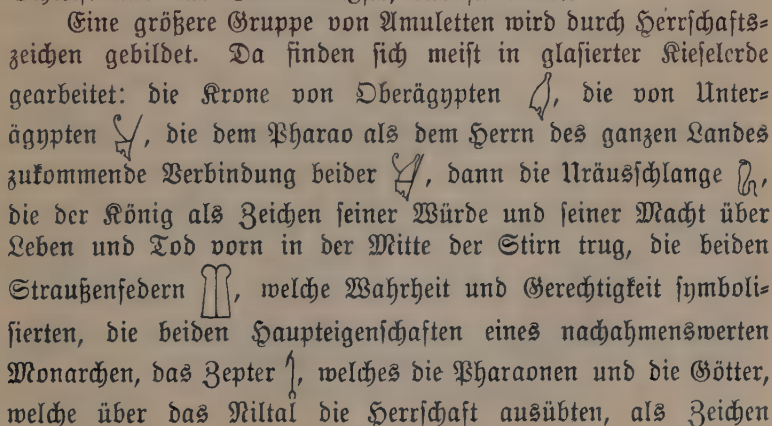 Eine größere Gruppe von Amuletten wird durch Herrschafts=
zeichen gebildet. Da finden sich meist in glasierter Kieselerde
gearbeitet: die Krone von Oberägypten , die von Unter=
ägypten , die dem Pharao als dem Herrn des ganzen Landes
zukommende Verbindung beider , dann die Uräusschlange ,
die der König als Zeichen seiner Würde und seiner Macht über
Leben und Tod vorn in der Mitte der Stirn trug, die beiden
Straußenfedern , welche Wahrheit und Gerechtigkeit symboli=
sierten, die beiden Haupteigenschaften eines nachahmenswerten
Monarchen, das Zepter , welches die Pharaonen und die Götter,
welche über das Niltal die Herrschaft ausübten, als Zeichen